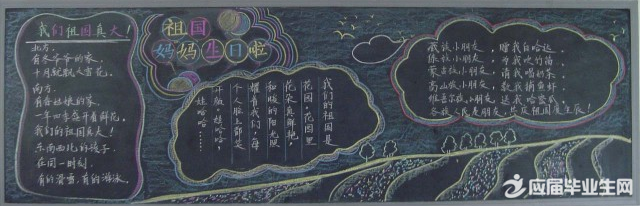 我们祖国真大！
北方，
有冬爷爷的家，
十月就飘大雪花。
南方，
有春姑娘的家，
一年四季盛开着鲜花。
我们的祖国真大！
东南西北的孩子，
在同一时刻，
有的滑雪，有的游泳。
祖国
妈妈生日啦
我们的祖国是
花园，花园里
花朵真鲜艳，
和暖的阳光照
耀着我们，每
个人脸上都笑
开颜，娃哈哈，
娃哈哈……
藏族小朋友，赠我白哈达，
傣族小朋友，为我吹竹笛，
蒙古族小朋友，请我喝奶茶，
高山族小朋友，教我捕鱼虾，
维吾尔族小朋友，送我哈密瓜，
各族人民是朋友，共庆祖国度生辰！
应届毕业生网